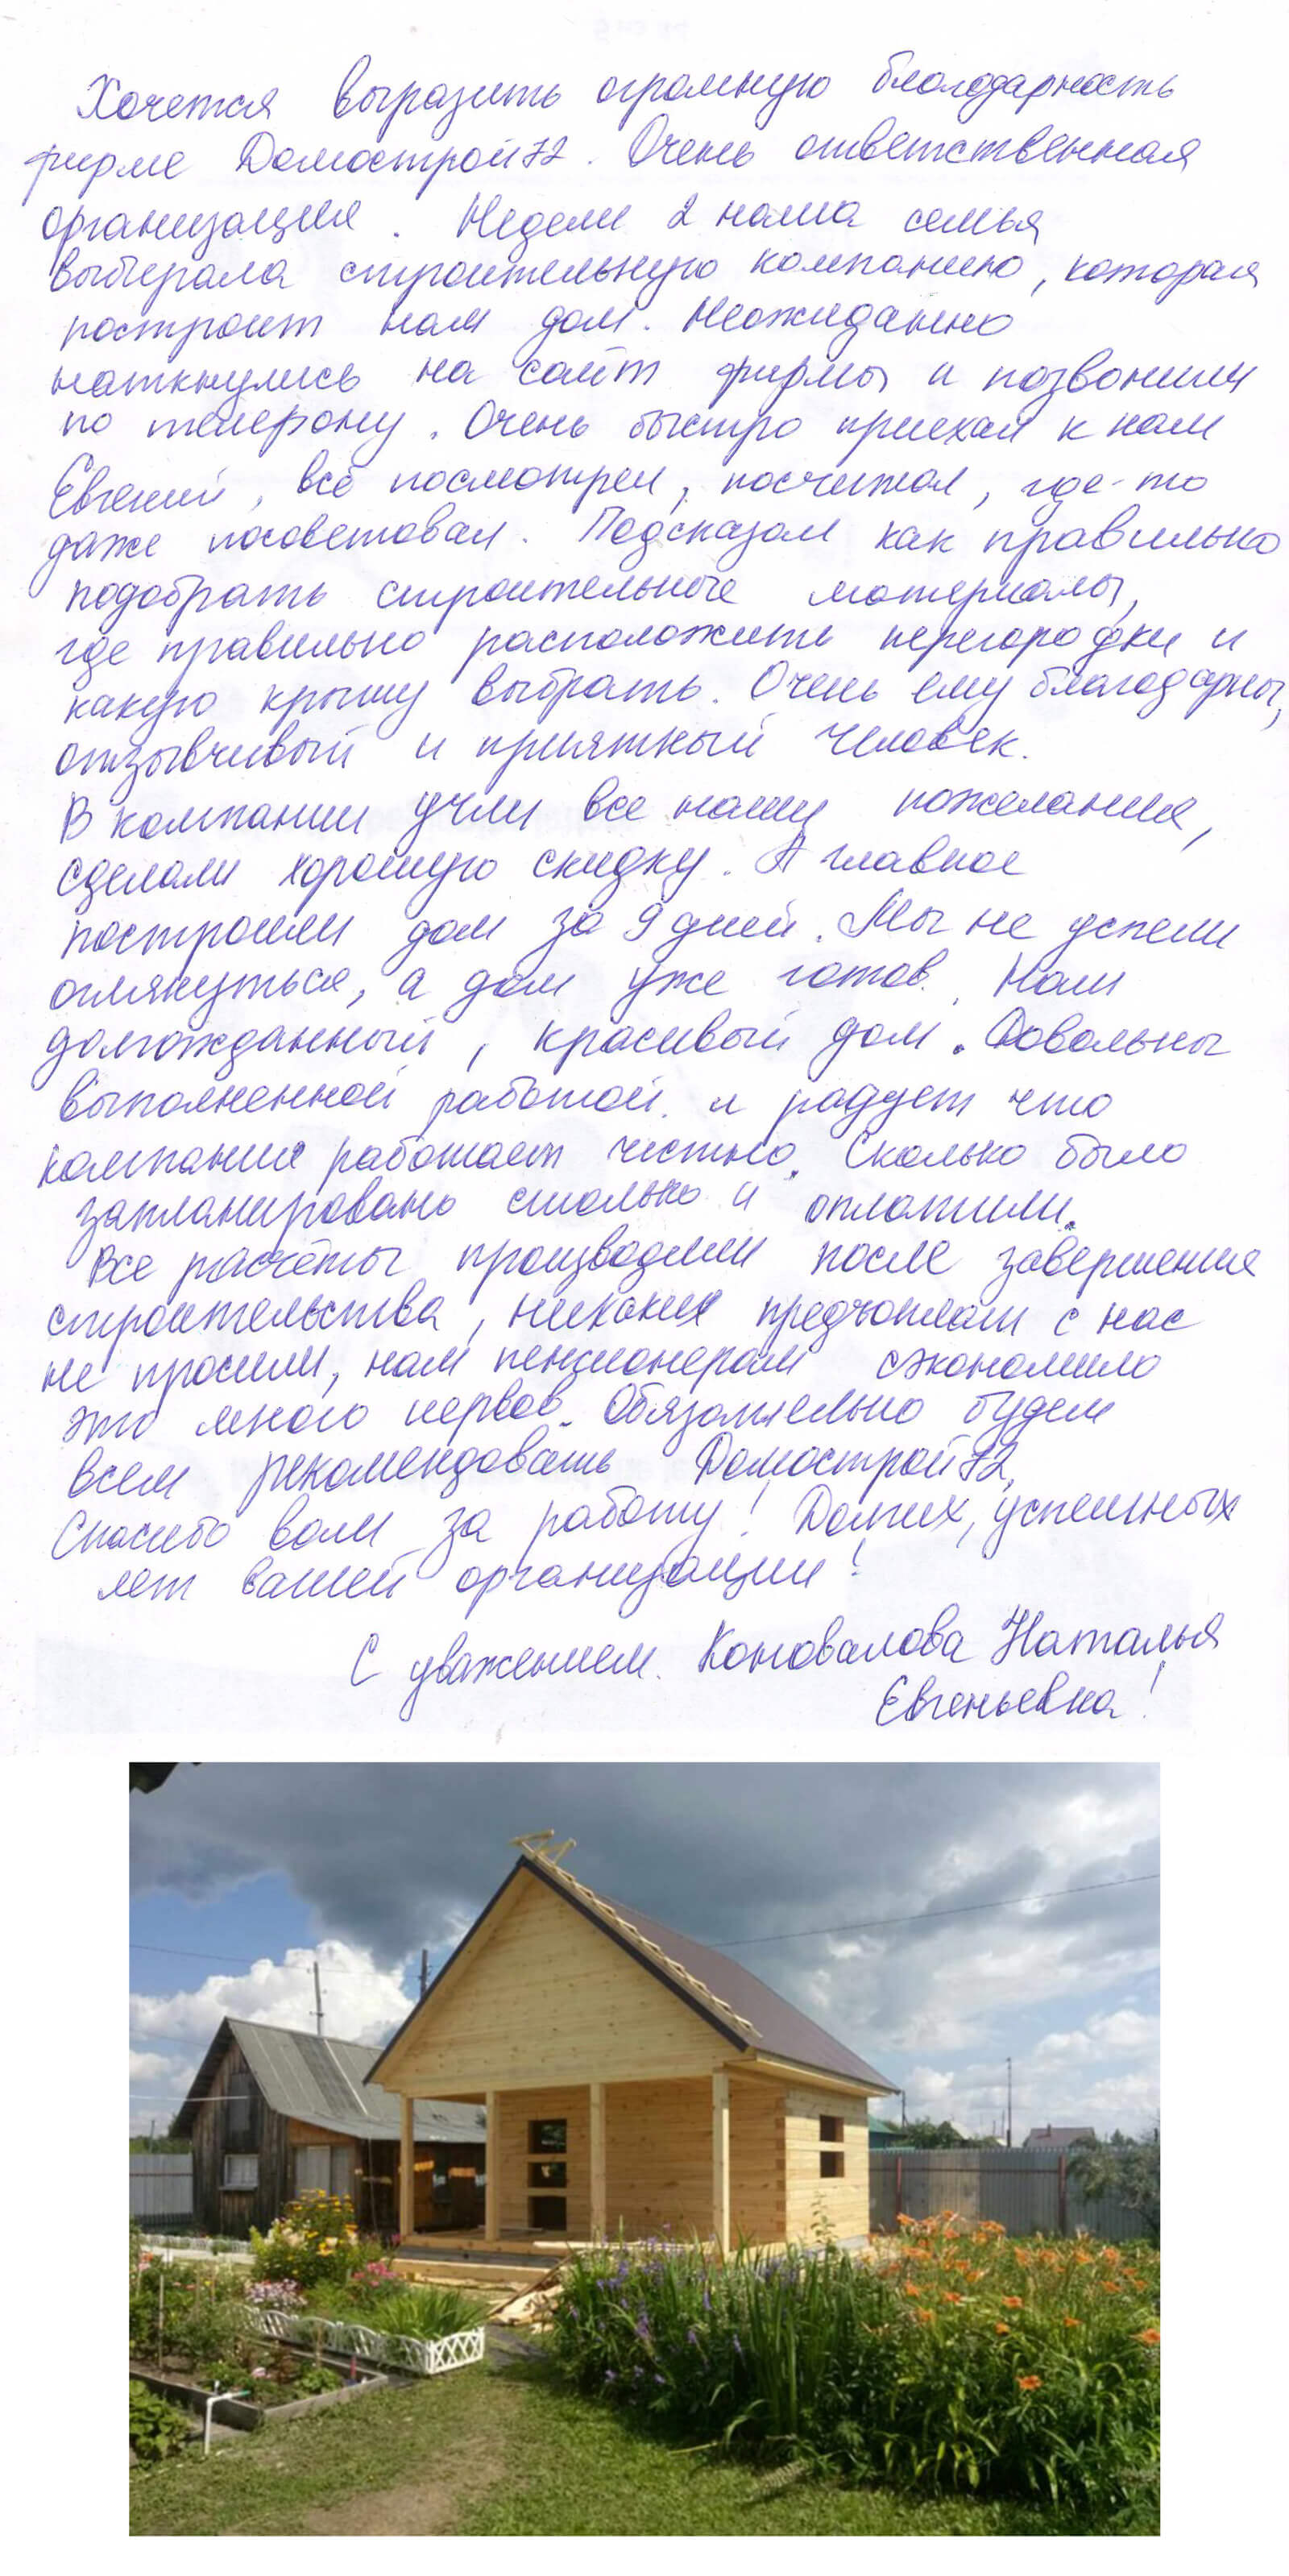 Хочется выразить огромную благодарность
фирме Домострой72. Очень ответственная
организация. Недели 2 наша семья
выбирала строительную компанию, которая
построит нам дом. Неожиданно
наткнулись на сайт фирмы и позвонили
по телефону. Очень быстро приехал к нам
Евгений, всё посмотрел, посчитал, где-то
даже посоветовал. Подсказал как правильно
подобрать строительные материалы,
где правильно расположить перегородки и
какую крышу выбрать. Очень ему благодарны,
отзывчивый и приятный человек.
В компании учли все наши пожелания,
сделали хорошую скидку. А главное
построили дом за 9 дней. Мы не успели
оглянуться, а дом уже готов. Наш
долгожданный, красивый дом. Довольны
выполненной работой. и радует что
компания работает честно. Сколько было
запланировано столько и оплатили.
Все расчёты производили после завершения
строительства, никаких предоплат с нас
не просили, нам пенсионерам сэкономило
это много нервов. Обязательно будем
всем рекомендовать Домострой72.
Спасибо вам за работу! Долгих, успешных
лет вашей организации!
С уважением. Коновалова Наталья
Евгеньевна!